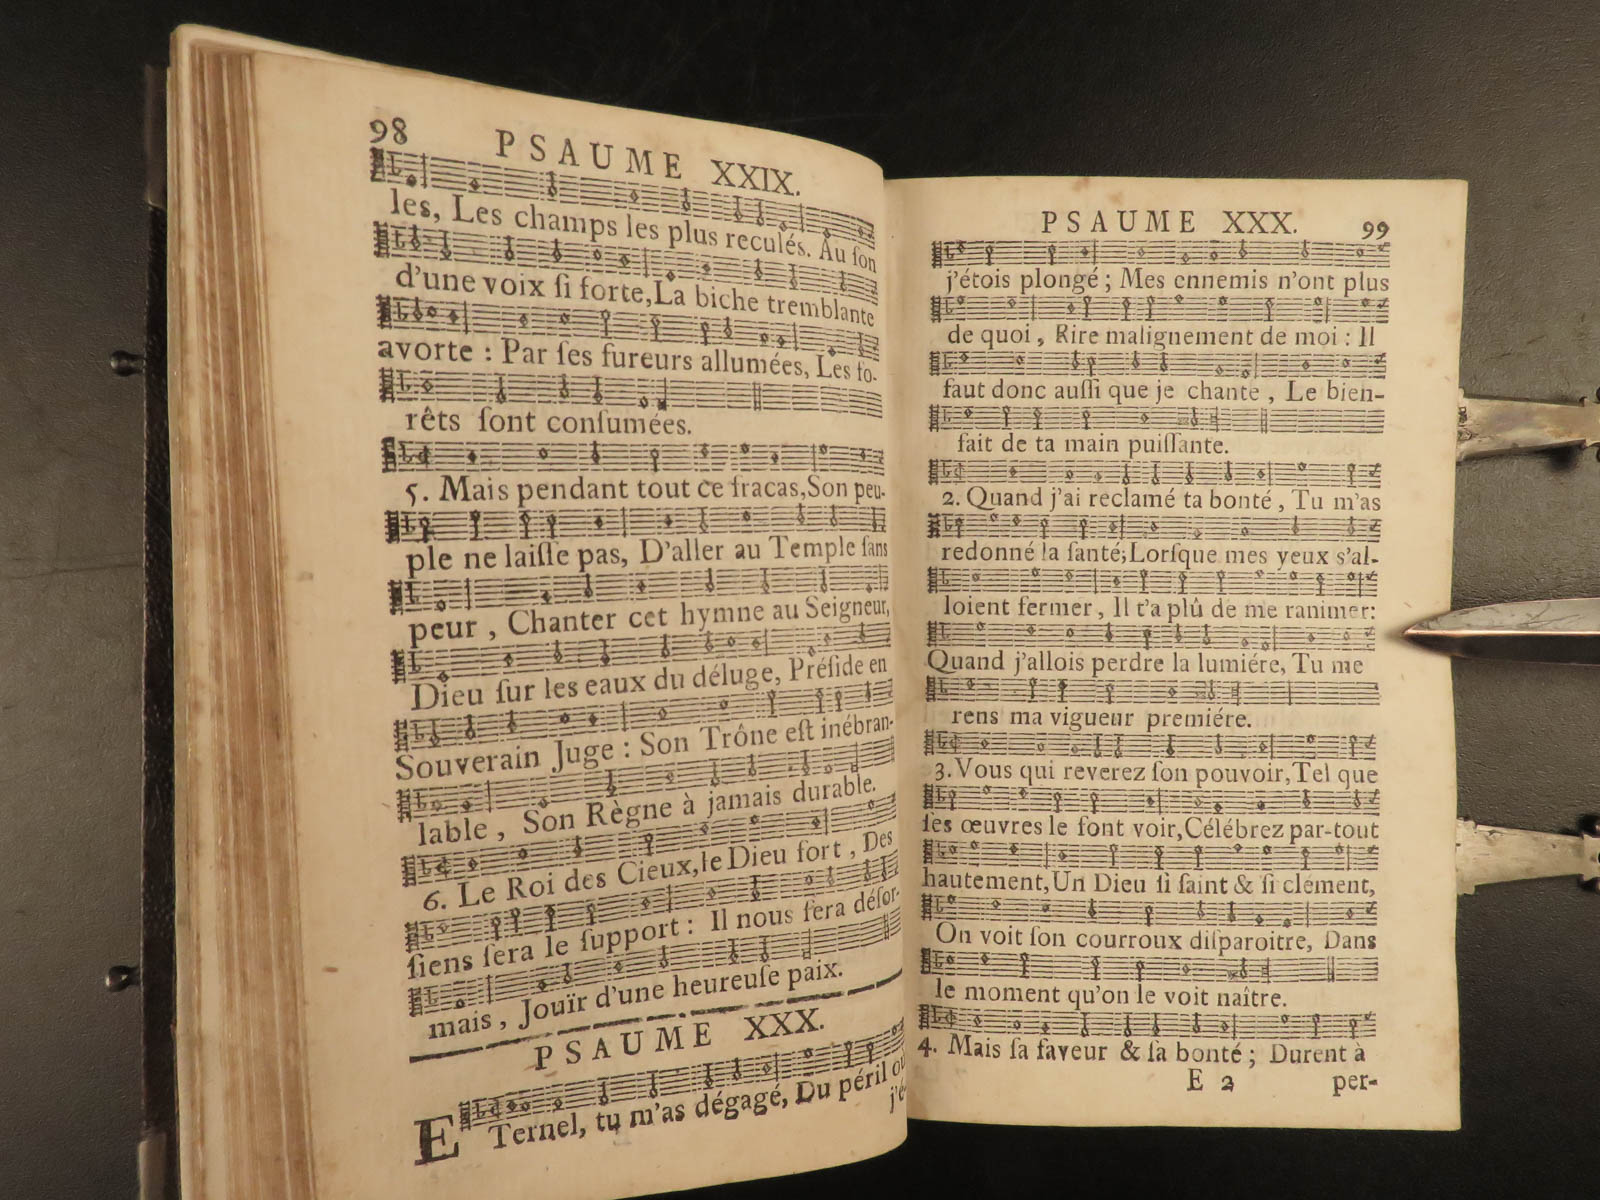 98 PSAUME XXIX.
les, Les champs les plus reculés. Au ſon
d'une voix ſi forte, La biche tremblante
avorte : Par ſes fureurs allumées, Les fo-
rêts ſont conſumées.
5. Mais pendant tout ce fracas, Son peu-
ple ne laiſſe pas, D'aller au Temple ſans
peur, Chanter cet hymne au Seigneur,
Dieu ſur les eaux du déluge, Préſide en
Souverain Juge : Son Trône eſt inébran-
lable, Son Règne à jamais durable.
6. Le Roi des Cieux, le Dieu fort, Des
ſiens ſera le ſupport : Il nous ſera déſor-
mais, Jouïr d'une heureuſe paix.
PSAUME XXX.
ETernel, tu m'as dégagé, Du péril où
j'é-
PSAUME XXX. 99
j'étois plongé ; Mes ennemis n'ont plus
de quoi, Rire malignement de moi : Il
faut donc auſſi que je chante, Le bien-
fait de ta main puiſſante.
2. Quand j'ai reclamé ta bonté, Tu m'as
redonné la ſanté; Lorſque mes yeux s'al-
loient fermer, Il t'a plû de me ranimer:
Quand j'allois perdre la lumiére, Tu me
rens ma vigueur premiére.
3. Vous qui reverez ſon pouvoir, Tel que
ſes œuvres le font voir, Célébrez par-tout
hautement, Un Dieu ſi ſaint & ſi clément,
On voit ſon courroux diſparoitre, Dans
le moment qu'on le voit naître.
4. Mais ſa faveur & ſa bonté ; Durent à
E 2 per-